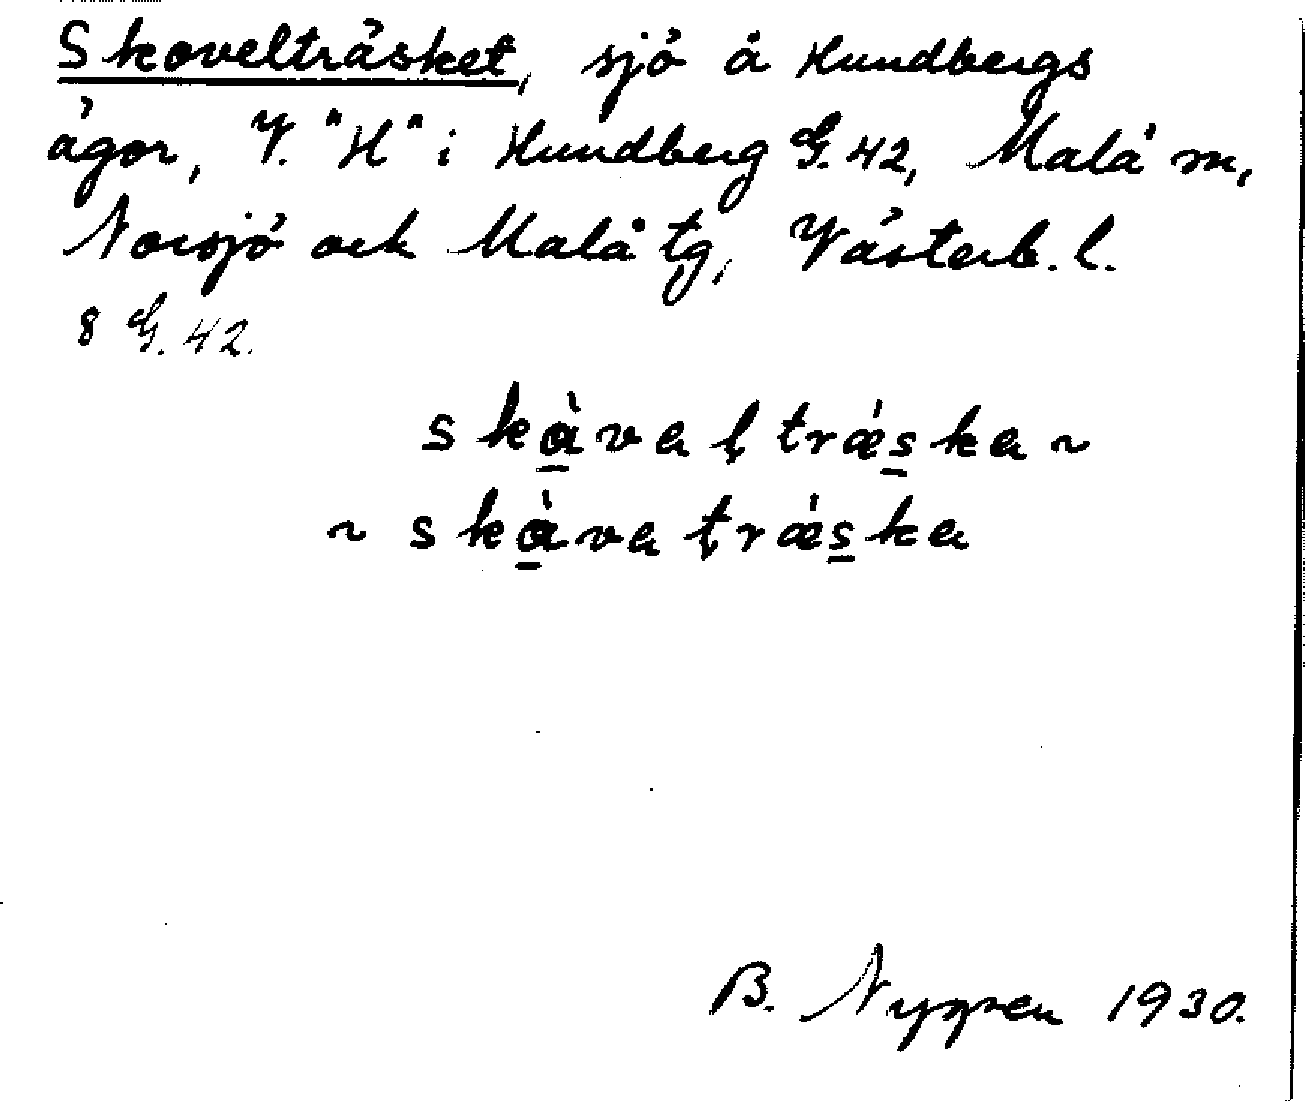 Skovelträsket, sjö å Hundbergs
ägor, V. "H" i Hundberg G. 42, Malå m,
Norsjö och Malå tg, Västerb. l.
8 G. 42.
skàvaḷtrǽska ~
~ skàvaṭrǽska
B. Nygren 1930.